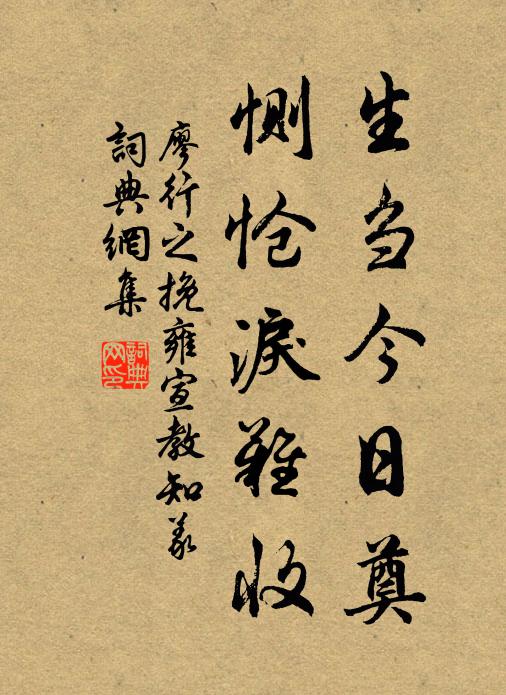 生刍今日奠
恻怆淚難收
廖行之挽雍宣教知義
詞典網集
詞典網印